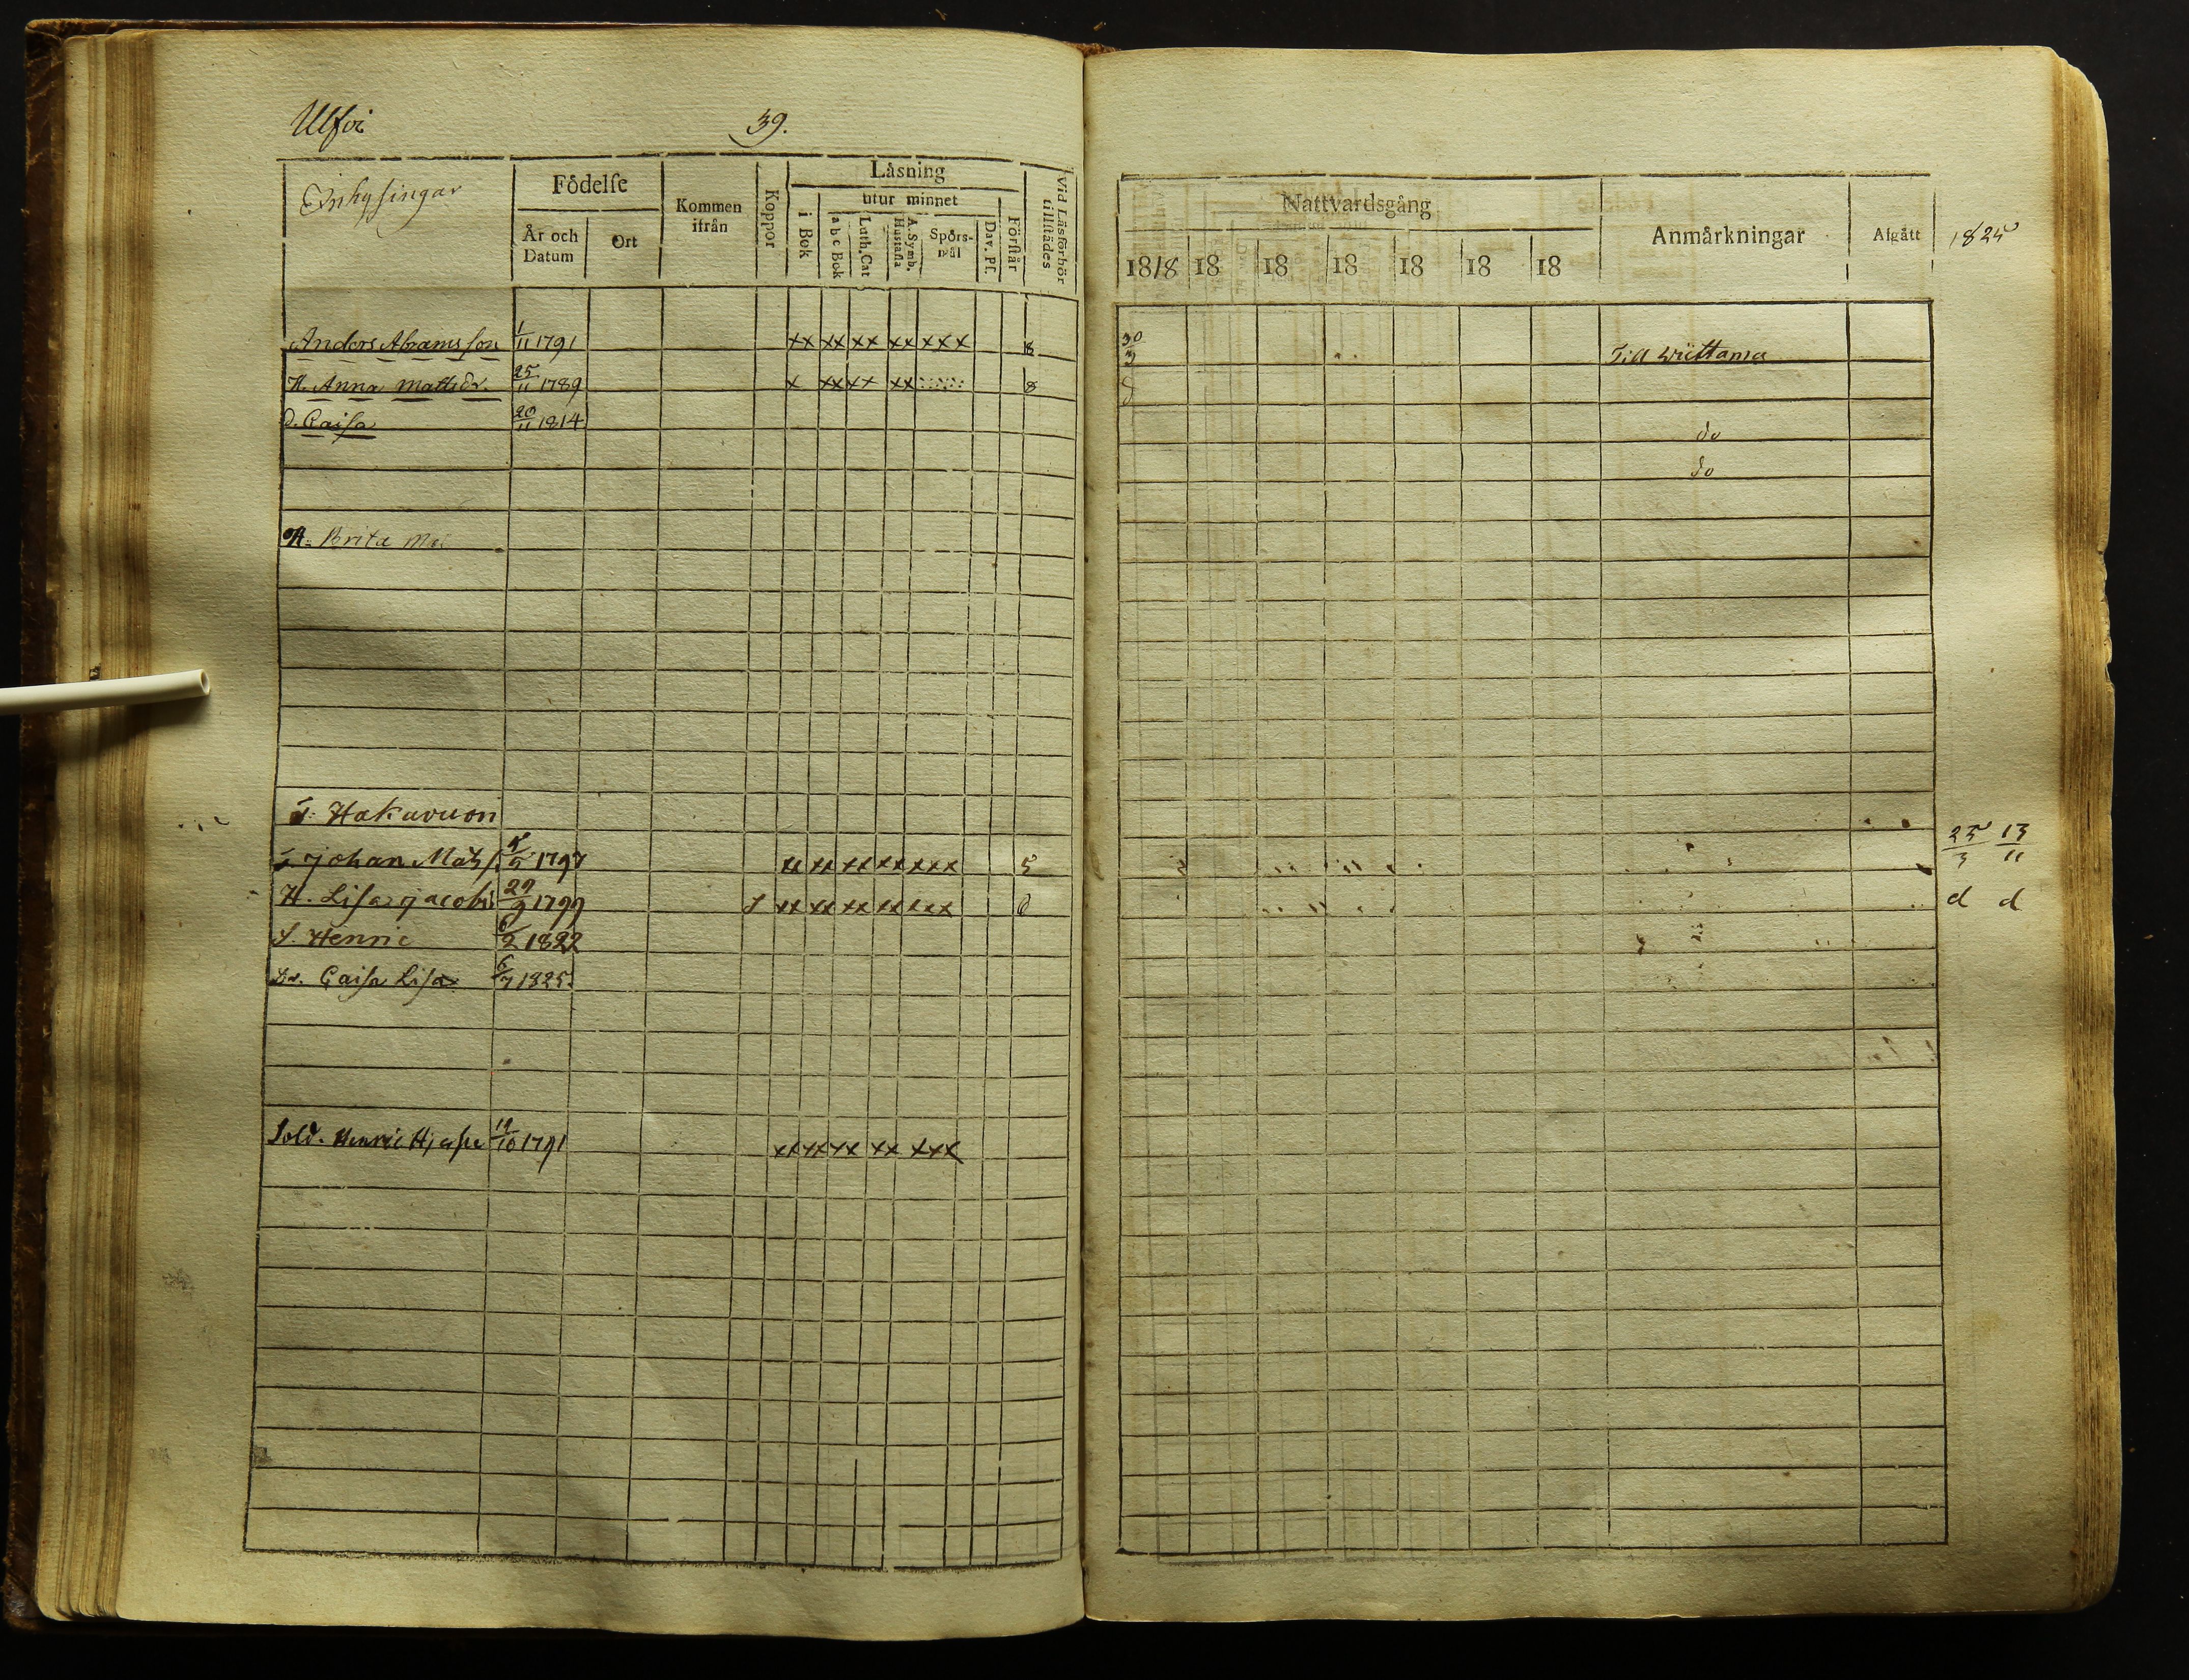 39.
Inhysingar
Födelse
År och Datum
Ort
Kommen ifrån
Koppor
Läsning
i Bok
utur minnet
a b c Bok
Luth. Cat
A. Symb. Hustafla
Spörsmål
Dav. Ps.
Förstår
Vid Läsförhör tillstädes
Nattvardsgång
1818 18 18 18 18 18 18
Anmärkningar
Afgått
1825
Anders Abramsson 1/11 1791 xx xx xx xx xxx 8 30/3 Till Wiittama
H. Anna Mattsdr. 25/11 1789 x xx xx xx 8
d. Caisa 20/11 1814 do
do
H. Brita
Hakavuori
Johan Mats 1797 xx xx xx xx xxx 5 25/3 13/11
H. Lisa Jacobs 29/9 1799 xx xx xx xx xxx d d
S. Henric 6/2 1822
Dr. Caisa Lisa 6/7 1825.
Sold. Henric 1791 xx xx xx xx xxx